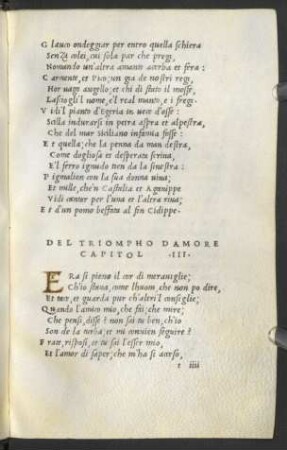 G lauco ondeggiar per entro quella schiera
Senza colei, cui sola par che pregi,
Nomando un'altra amante acerba et fera:
C armente, et Pico, un gia de nostri regi,
Hor vago augello; et chi di stato il mosse,
Lasciogli'l nome, e'l real manto, e i fregi.
V idi'l pianto d'Egeria in vece d'osse:
Scilla indurarsi in petra aspra et alpestra,
Che del mar siciliano infamia fosse:
E t quella; che la penna da man destra,
Come dogliosa et desperata scriva,
E'l ferro ignudo tien da la sinestra:
P igmalion con la sua donna viva;
Et mille, che'n Castalia et Aganippe
Vidi cantar per l'una et l'altra riva;
E t d'un pomo beffata al fin Cidippe.
DEL TRIOMPHO DAMORE
CAPITOL .III.
ERa si pieno il cor di meraviglie;
Ch'io stava, come l'huom, che non po dire,
Et tace, et guarda pur ch'altri'l consiglie;
Quando l'amico mio, che fai; che mire;
Che pensi, disse? non sai tu ben, ch'io
Son de la turba; et mi convien seguire?
F rate, risposi, et tu sai l'esser mio,
Et l'amor di saper; che m'ha si acceso,
r iiii